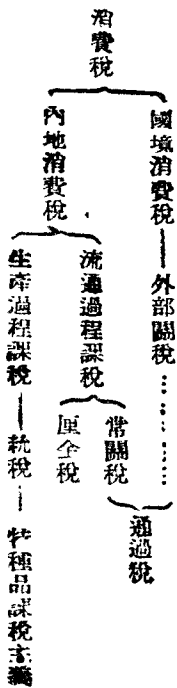 消費稅
國境消費稅——外部關稅……
內地消費稅
流通過程課稅
常關稅
厘金稅
通過稅
生產過程課稅——統稅——特種品課稅主義